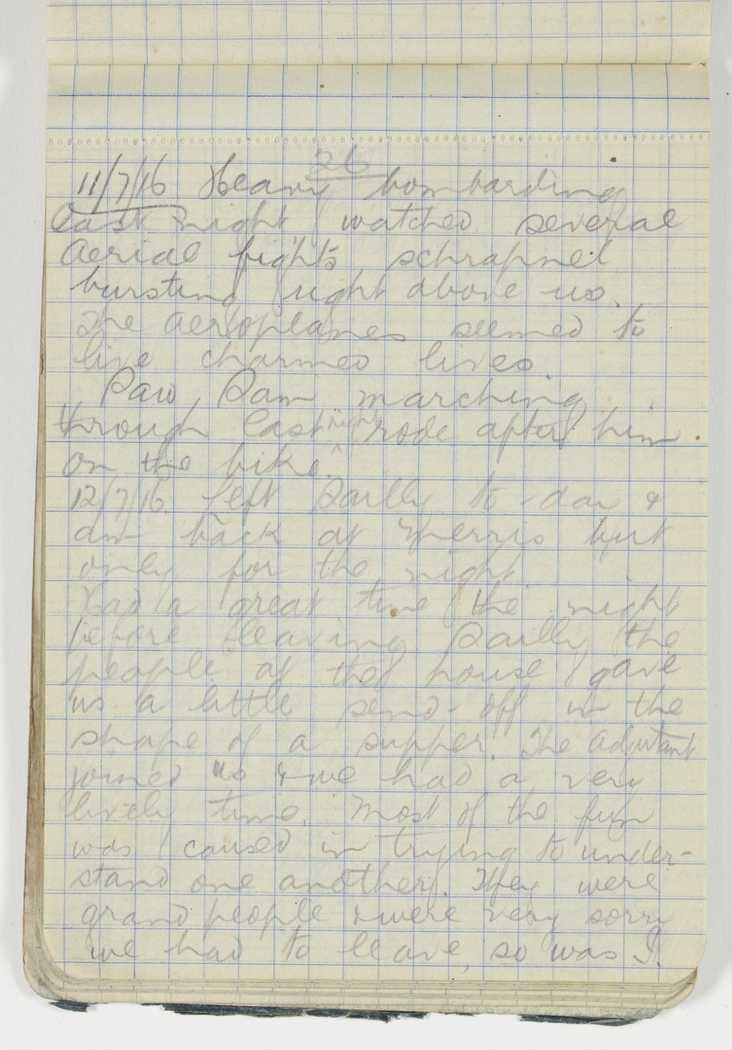 26
11/7/16 Heavy bombarding
last night watched several
aerial fights schrapnel
bursting right above us.
The aeroplanes seemed to
live charmed lives.
Saw Sam marching
through last night rode after him.
on the bike.
12/7/16. Left Sailly to-day &
am back at Merris but
only for the night
Had a great time the night
before leaving Sailly the
people of the house gave
us a little send-off in the
shape of a supper. The Adjutant
joined us & we had a very
lively time. Most of the fun
was caused in trying to under-
stand one another. They were
grand people & were very sorry
we had to leave, so was I.